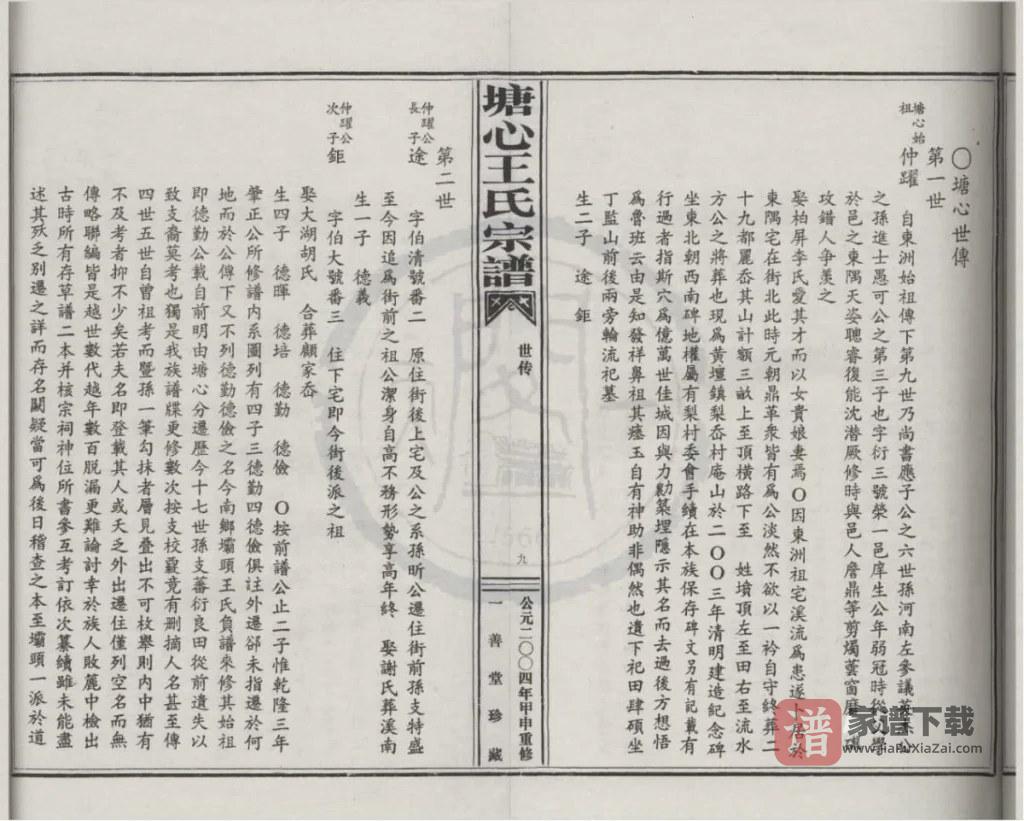 〇塘心世傳
第一世
塘心始祖 仲躍 自東洲始祖傳下第九世乃尚書應子公之六世孫河南左參議
之孫進士愚可公之第三子也字衍三號榮一邑庠生公年弱冠時從
於邑之東隅天姿聰睿復能沈潛厥修時與邑人詹鼎等剪燭蕓窗
攻錯人爭羨之
娶柏屏李氏愛其才而以女貴娘妻焉〇因東洲祖宅溪流爲患遂卜居於
東隅宅在街北此時元朝鼎革衆皆有爲公淡然不欲以一衿自守終葬二
十九都麗岙其山計額三畝上至頂橫路下至 姓墳頂左至田右至流水
方公之將葬也現爲黄壇鎮梨岙村庵山於二〇〇三年清明建造紀念碑
坐東北朝西南碑地權屬有梨村委會手續在本族保存碑文另有記載有
行過者指斯穴爲億萬世佳城因與力勷築埋隱示其名而去過後方想悟
爲魯班云由是知發祥鼻祖其瘞玉自有神助非偶然也遺下祀田肆碩坐
丁監山前後兩旁輪流祀墓
生二子 途 鉅
塘心王氏宗譜
世传
九
公元二〇〇四年甲申重修
一善堂珍藏
第二世
仲躍公長子 途 字伯清號番二 原住街後上宅及公之系孫昕公遷住街前孫支特盛
至今因追爲街前之祖公潔身自高不務形勢享高年終 娶謝氏葬溪南
生一子 德義
仲躍公次子 鉅 字伯大號番三 住下宅即今街後派之祖
娶大湖胡氏 合葬顧家岙
生四子 德暉 德培 德勤 德儉 〇按前譜公止二子惟乾隆三年
肇正公所修譜内系圖列有四子三德勤四德儉俱註外遷卻未指遷於何
地而於公傳下又不列德勤德儉之名今南鄉壩頭王氏負譜來修其始祖
即德勤公載自前明由塘心分遷歷今十七世孫支蕃衍良田從前遺失以
致支裔莫考也獨是我族譜牒更修數次按支校覈竟有删摘人名甚至傳
四世五世自曾祖考而暨孫一筆勾抹者層見叠出不可枚舉則内中猶有
不及考者抑不少矣若夫名即登載其人或夭乏外出遷住僅列空名而無
傳略聯編皆是越世數代越年數百脱漏更難論討幸於族人敗麓中檢出
古時所有存草譜二本并核宗祠神位所書參互考訂依次纂續雖未能盡
述其殀乏别遷之詳而存名闕疑當可爲後日稽查之本至壩頭一派於道
譜 家谱下载
www.JiaPuXiaZai.com